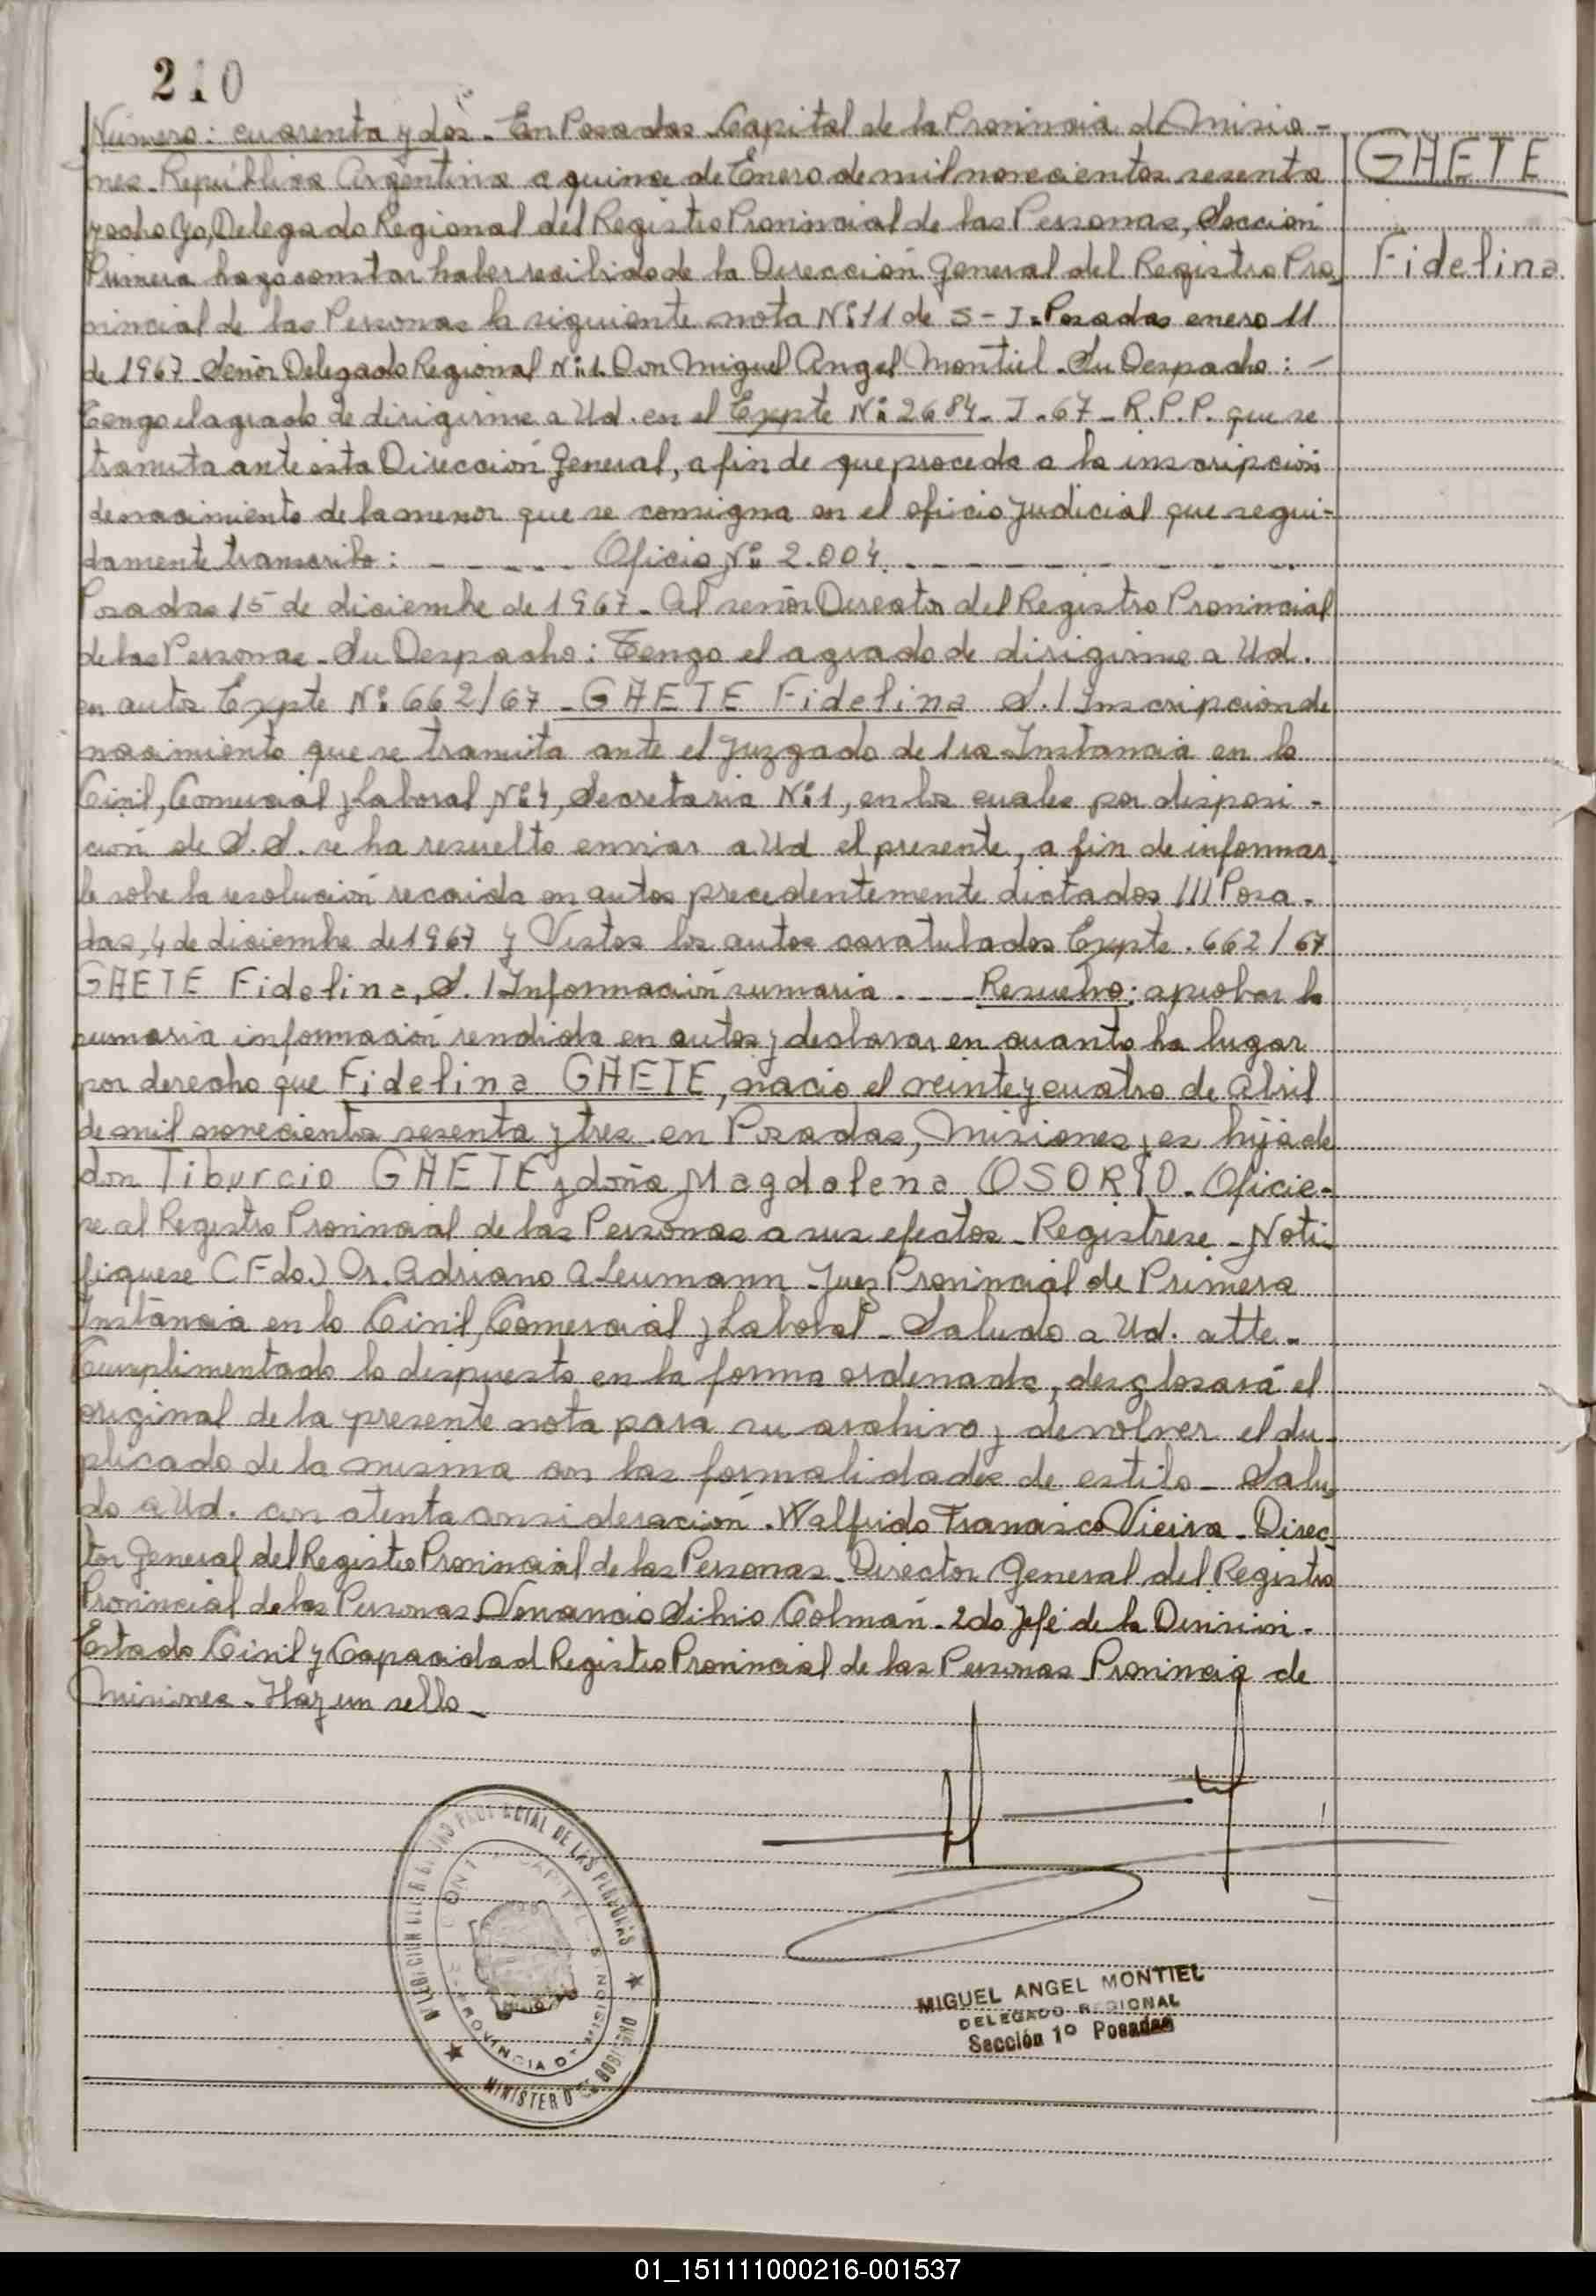 210
Número: cuarenta y dos - En Posadas Capital de la Provincia de Misio-
nes República Argentina a quince de Enero de mil novecientos sesenta
y ocho Yo, Delegado Regional del Registro Provincial de las Personas, Sección
Primera hago constar haber recibido de la Dirección General del Registro Pro-
vincial de las Personas la siguiente nota Nº 11 de S-J. Posadas enero 11
de 1967. Señor Delegado Regional Nº 1. Don Miguel Angel Montiel. Su Despacho: -
Tengo el agrado de dirigirme a Ud. en el Expte Nº 2684-J-67-R.P.P. que se
tramita ante esta Dirección General, a fin de que proceda a la inscripción
de nacimiento de la menor que se consigna en el oficio Judicial que segui-
damente transcribo: - - - - - Oficio Nº 2.004. - - - - - - - -
Posadas 15 de diciembre de 1967 - Al señor Director del Registro Provincial
de las Personas - Su Despacho: Tengo el agrado de dirigirme a Ud.
en autos Expte Nº 662/67 - GAETE Fidelina S./Inscripción de
nacimiento que se tramita ante el Juzgado de 1ra Instancia en lo
Civil, Comercial y Laboral Nº 4, Secretaria Nº 1, en los cuales por disposi-
ción de S.S. se ha resuelto enviar a Ud el presente, a fin de informar-
le sobre la resolución recaida en autos precedentemente dictados /// Posa-
das, 4 de diciembre de 1967 y Vistos los autos caratulados Expte. 662/67
GAETE Fidelina, S./Información sumaria. - - - Resuelvo: aprobar la
sumaria información rendida en autos y declarar en cuanto ha lugar
por derecho que Fidelina GAETE, nacio el veinte y cuatro de Abril
de mil novecientos sesenta y tres en Posadas, Misiones y es hija de
don Tiburcio GAETE y doña Magdalena OSORIO. Oficie-
se al Registro Provincial de las Personas a sus efectos - Registrese - Noti-
fiquese (Fdo.) Dr. Adriano A Leumann Juez Provincial de Primera
Instancia en lo Civil, Comercial y Laboral - Saludo a Ud. atte.-
Cumplimentado lo dispuesto en la forma ordenada, desglosará el
original de la presente nota para su archivo y devolver el du-
plicado de la misma con las formalidades de estilo - Salu-
do a Ud. con atenta consideración. Walfrido Francisco Vieira - Direc-
tor General del Registro Provincial de las Personas - Director General del Registro
Provincial de las Personas Venancio Silvio Colmán - 2do Jefe de la División -
Estado Civil y Capacidad Registro Provincial de las Personas Provincia de
Misiones - Hay un sello -
GAETE
Fidelina
MIGUEL ANGEL MONTIEL
DELEGADO REGIONAL
Sección 1º Posadas
01_151111000216-001537